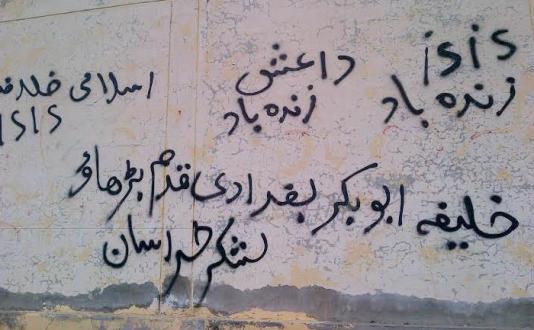 isis زندہ باد
داعش زندہ باد
اسلامی خلافت
ISIS
خلیفہ ابوبکر بغدادی قدم بڑھاؤ
لشکر خراسان